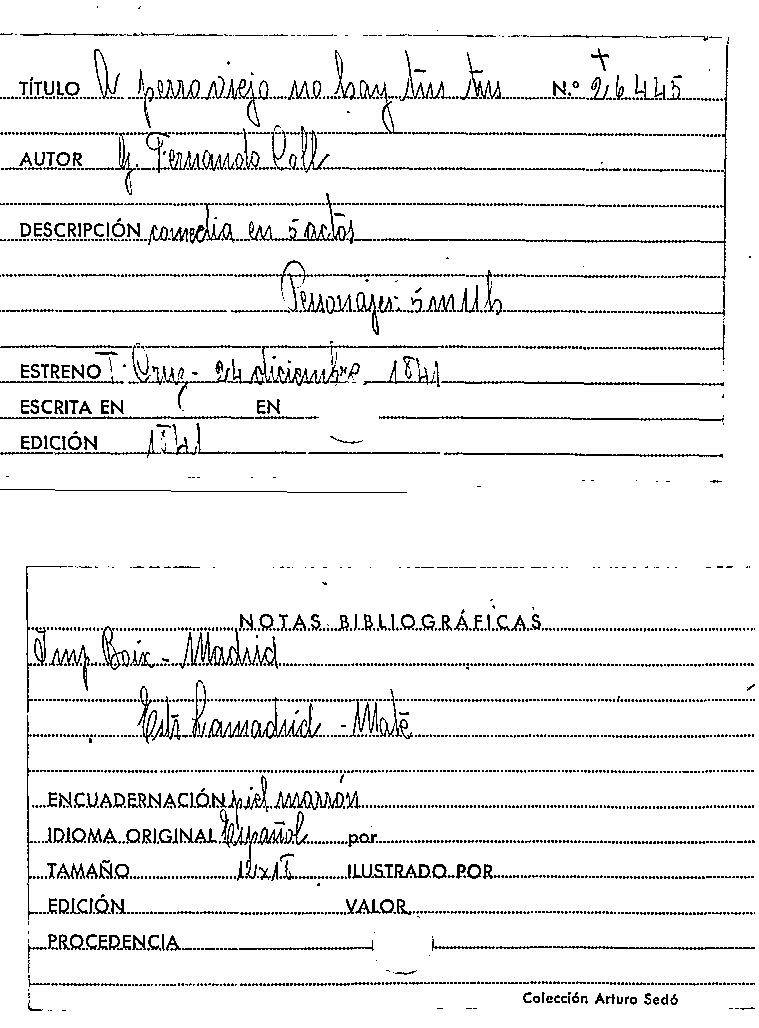 TÍTULO A perro viejo no hay tus tus N.º 26445
AUTOR G. Fernando Coll
DESCRIPCIÓN comedia en 5 actos
Personajes: 5 m 11 h
ESTRENO T. Cruz - 24 diciembre 1841
ESCRITA EN EN
EDICIÓN 1841
NOTAS BIBLIOGRÁFICAS
Imp Boix - Madrid
Estr Lamadrid - Mate
ENCUADERNACIÓN piel marrón
IDIOMA ORIGINAL Español por
TAMAÑO 12x18 ILUSTRADO POR
EDICIÓN VALOR
PROCEDENCIA
Colección Arturo Sedó